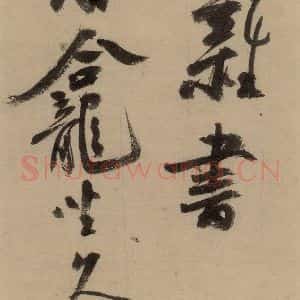 雜書
龕坐久
Shufawang.CN